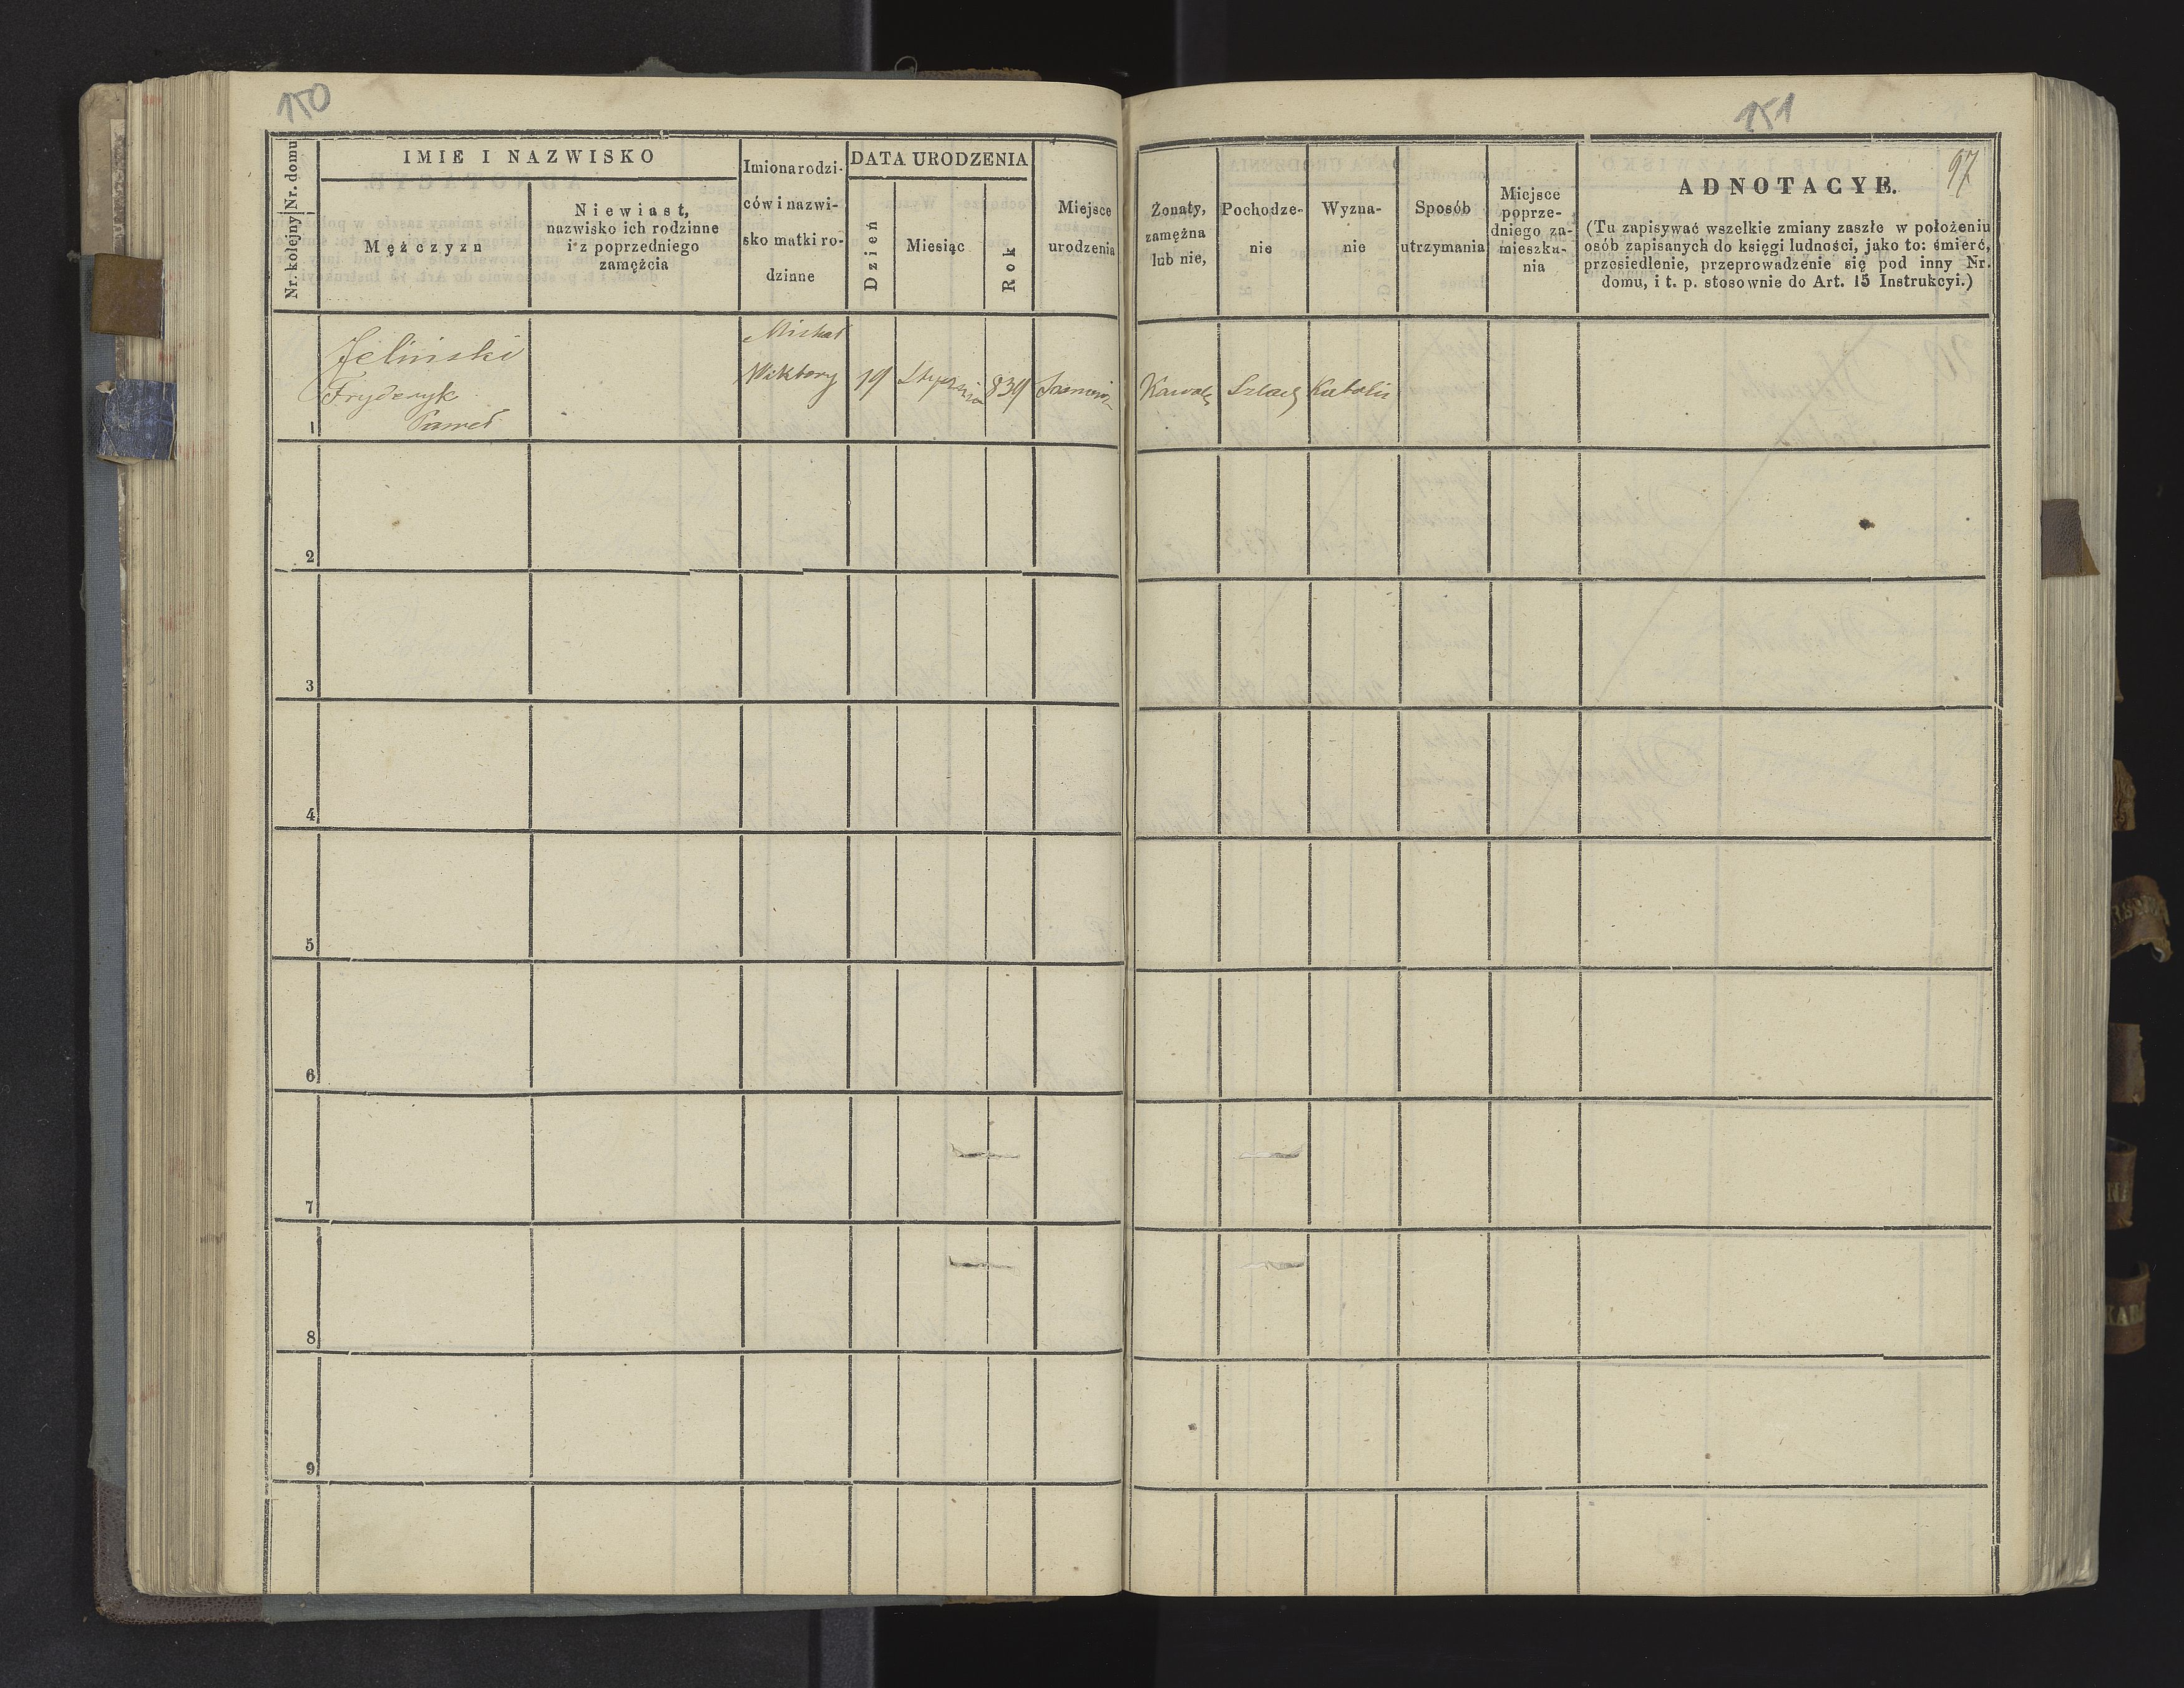 150
151
97
Nr. kolejny
Nr. domu
IMIE I NAZWISKO
Mężczyzn
Niewiast,
nazwisko ich rodzinne
i z poprzedniego
zamężcia
Imiona rodzi-
ców i nazwi-
sko matki ro-
dzinne
DATA URODZENIA
Dzień
Miesiąc
Rok
Miejsce
urodzenia
Żonaty,
zamężna
lub nie,
Pochodze-
nie
Wyzna-
nie
Sposób
utrzymania
Miejsce
poprze-
dniego za-
mieszka-
nia
ADNOTACYE.
(Tu zapisywać wszelkie zmiany zaszłe w położeniu
osób zapisanych do księgi ludności, jako to: śmierć,
przesiedlenie, przeprowadzenie się pod inny Nr.
domu, i t. p. stosownie do Art. 15 Instrukcyi.)
1
Jeliński
Fryderyk
Paweł
Michał
Wiktory
19
Stycznia
839
Kawale
Szlach
Katolik
2
3
4
5
6
7
8
9